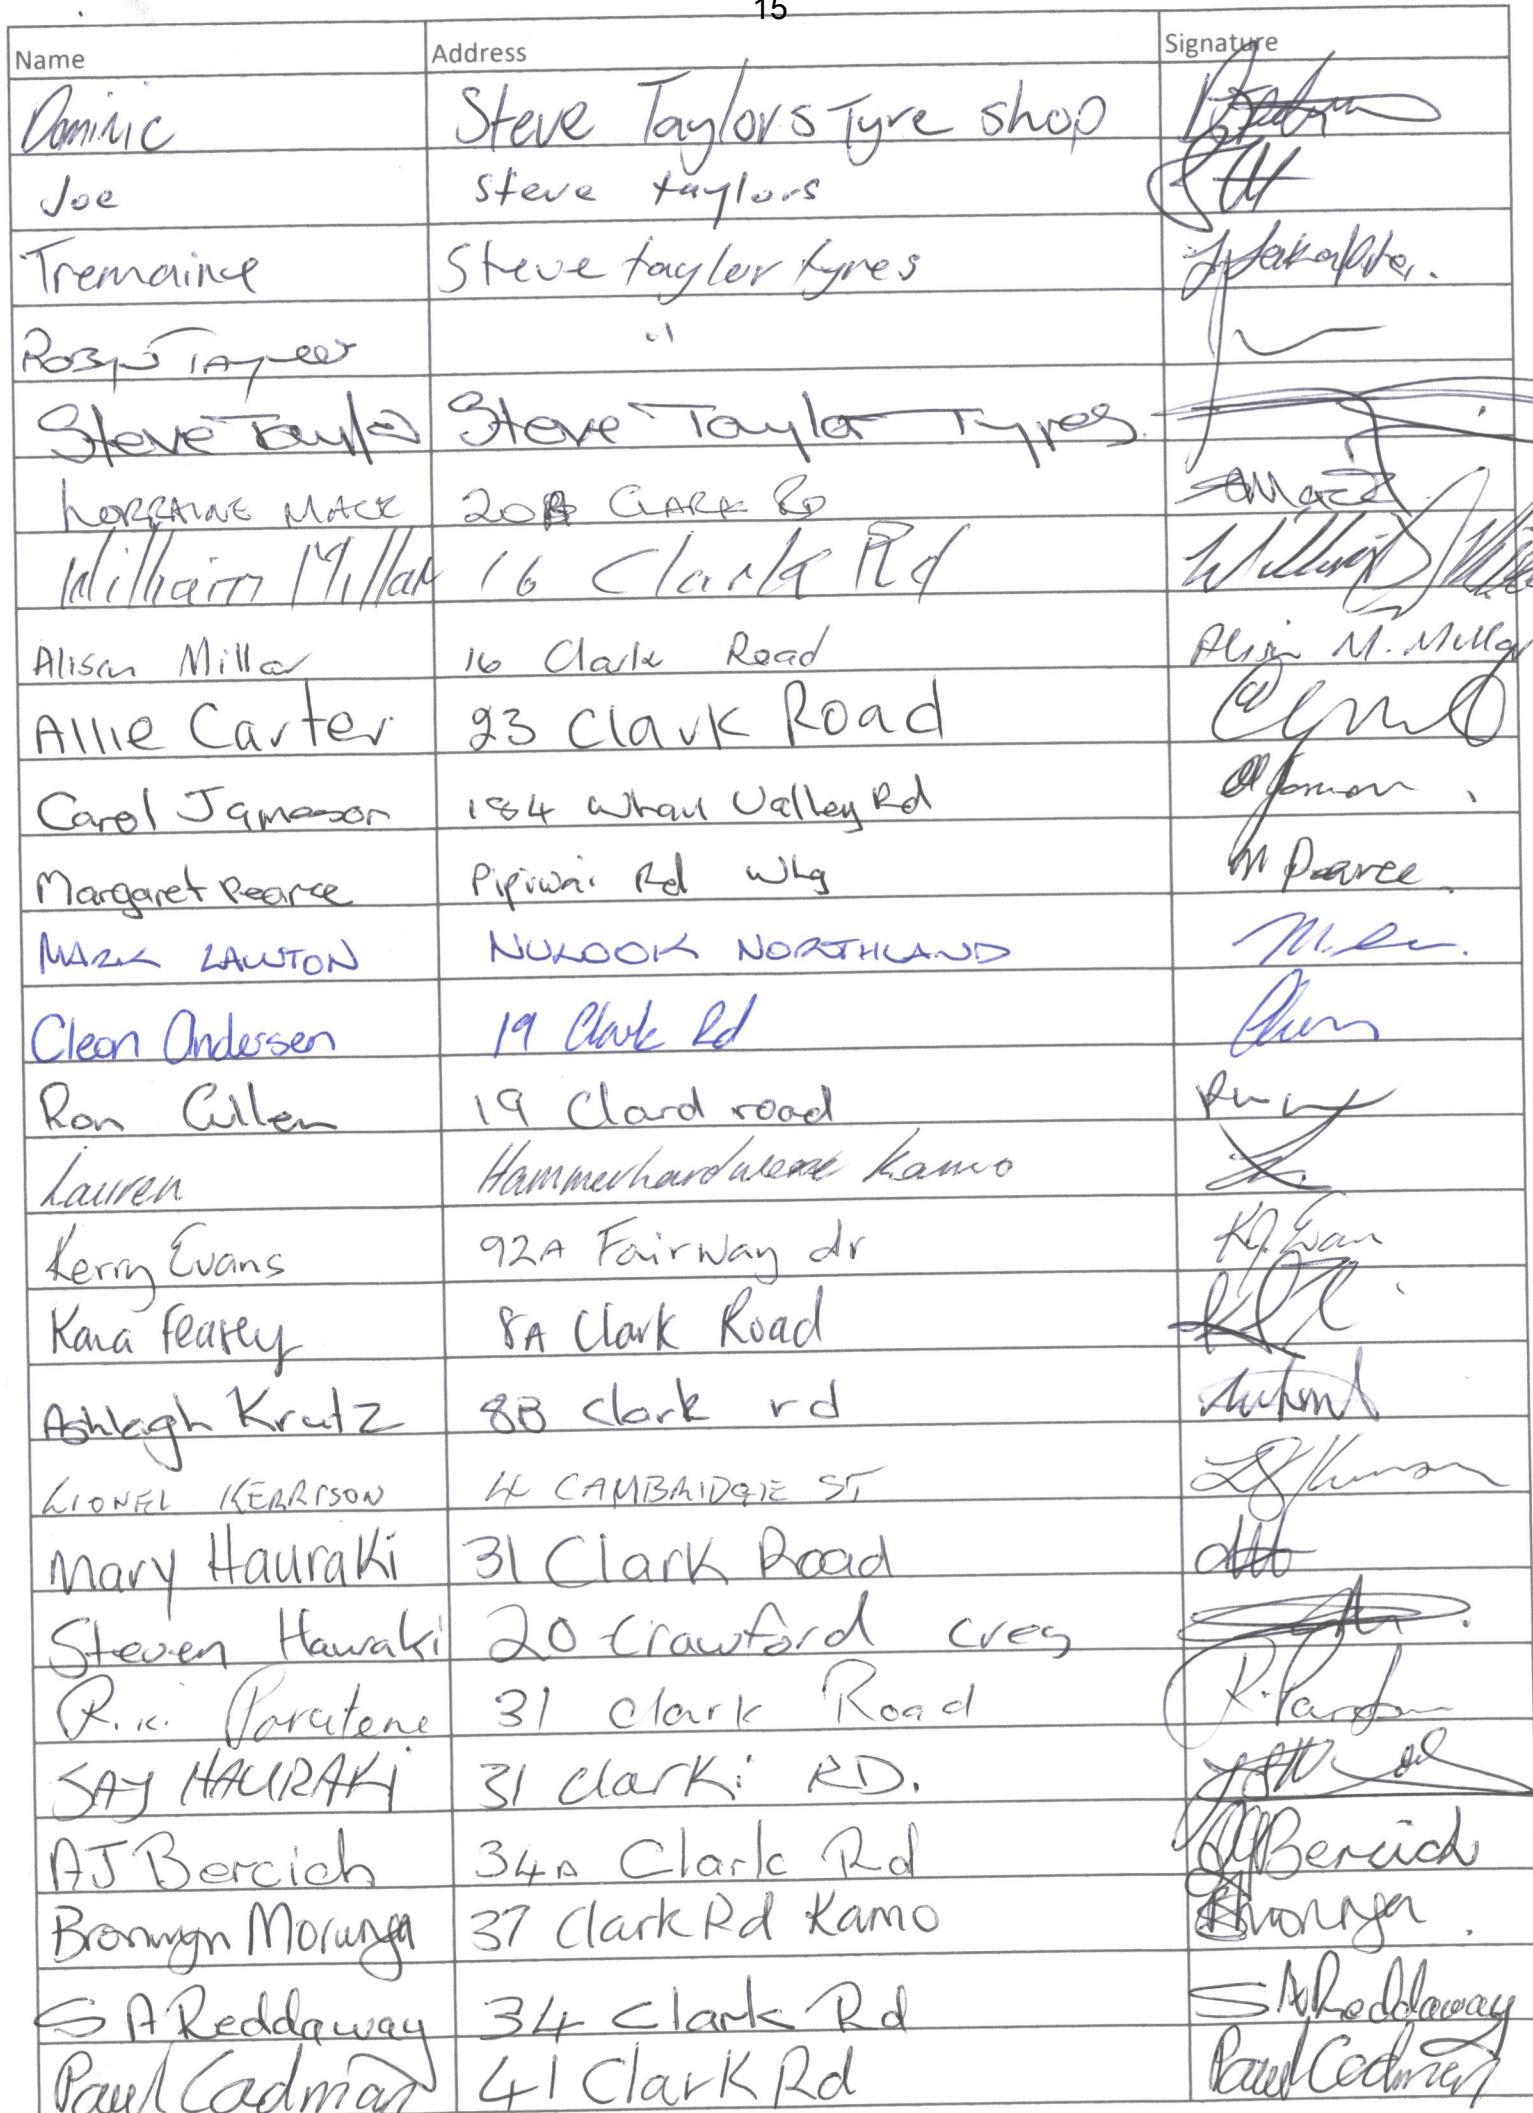 15
Name Address Signature
Dominic Steve Taylors Tyre shop
Joe Steve taylors
Tremaine Steve taylor tyres
Robyn Taylor "
Steve Taylor Steve Taylor Tyres
LORRAINE MACK 20B CLARK RD
William Millar 16 Clark Rd William Millar
Alison Millar 16 Clark Road Alison M. Millar
Allie Carter 23 Clark Road
Carol Jameson 184 Whau Valley Rd
Margaret Pearce Pipiwai Rd Whg M Pearce
MARK LAWTON NULOOK NORTHLAND
Cleon Andersen 19 Clark Rd
Ron Cullen 19 Clard road
Lauren Hammerhardware Kamo
Kerry Evans 92A Fairway dr KJ. Evan
Kara Feasey 8A Clark Road
Ashleagh Krutz 8B clark rd
LIONEL KERRISON 4 CAMBRIDGE ST
Mary Hauraki 31 Clark Road
Steven Hauraki 20 Crawford cres
R.K. Paratene 31 Clark Road
SAY HAURAKi 31 Clarki RD.
AJ Bercich 34A Clark Rd AJ Bercich
Bronwyn Morunga 37 Clark Rd Kamo
S A Reddaway 34 Clark Rd S A Reddaway
Paul Cadman 41 Clark Rd Paul Cadman